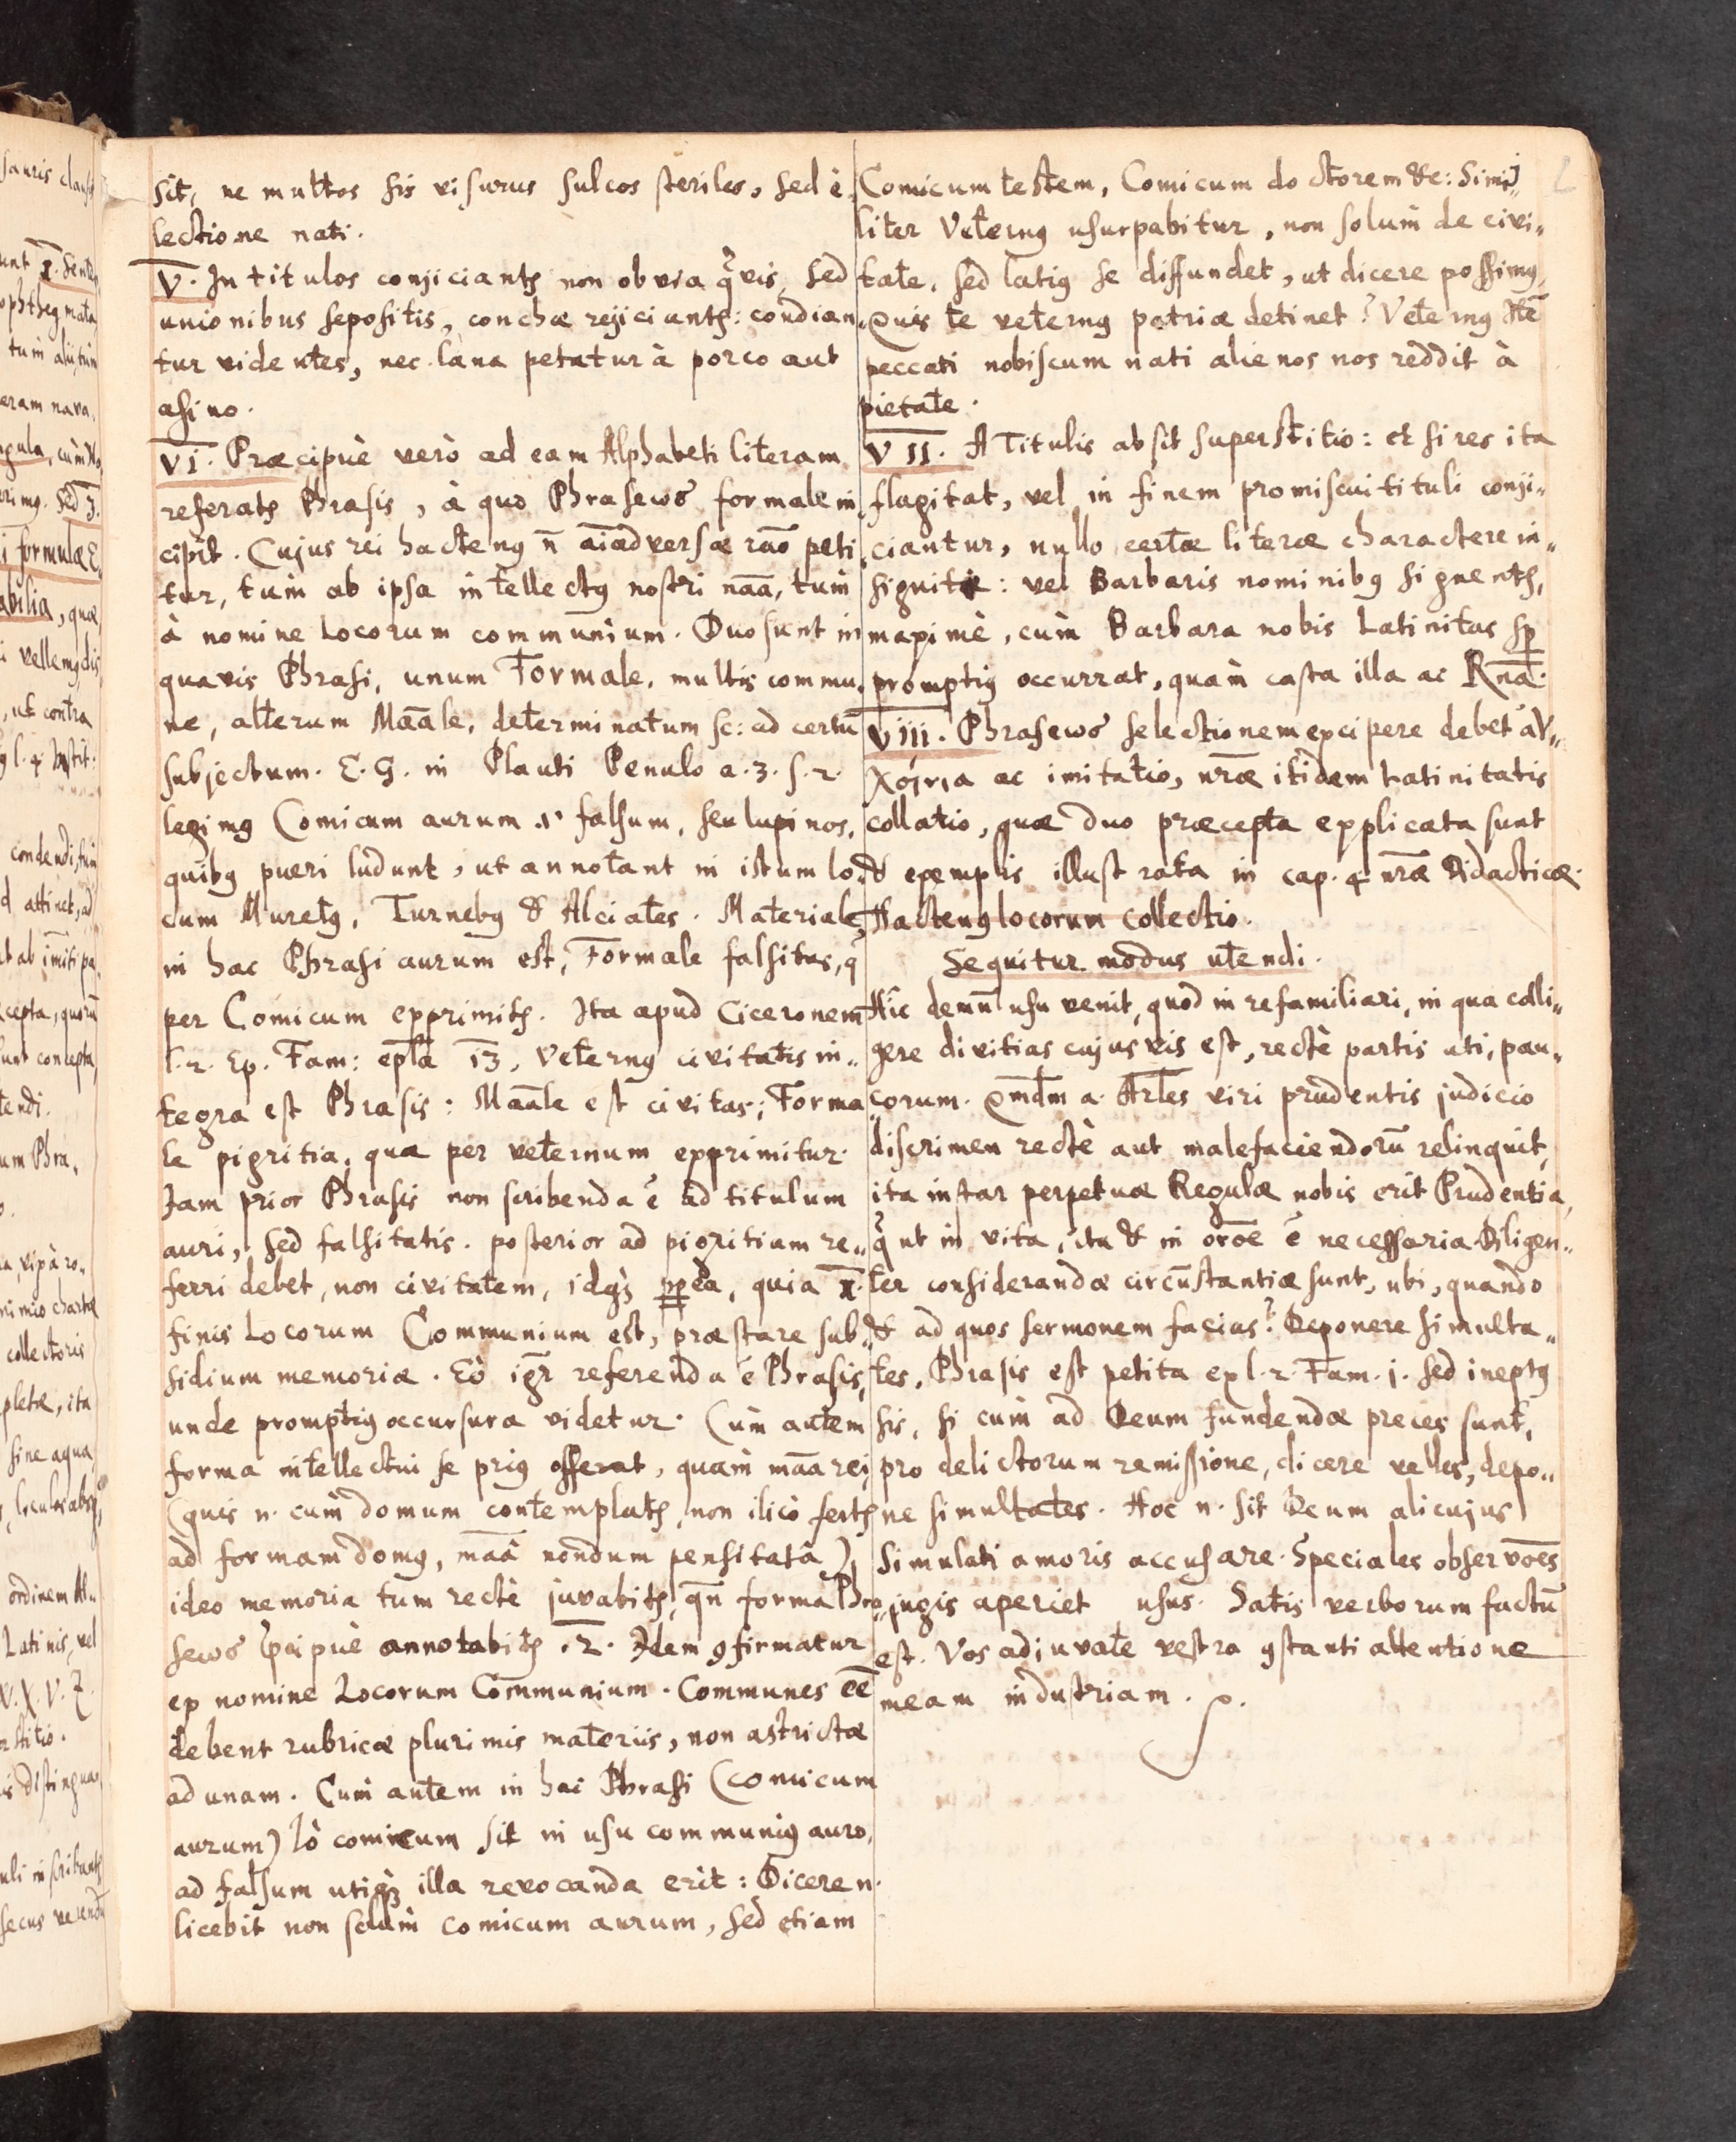 sit, ne multos sis visurus sulcos steriles, sed è
lectione nati.
V. In titulos conjiciantꝶ non obvia q̃vis, sed
unionibus sepositis, conchæ rejiciantꝶ: condian„
tur videntes, nec làna petatur à porco aut
asino.
VI. Præcipuè verò ad eam Alphabeti literam
referatꝶ Phrasis, à quo Phraseωs formale in„
cipit. Cujus rei hactenꝰ n̄ aīadversæ rāo peti„
tur, tum ab ipsa intellectꝰ nostri nāa, tum
à nomine Locorum communium. Duo sunt in
quavis Phrasi, unum Formale, multis commu„
ne, alterum Māale, determinatum sc: ad certū
subjectum. E. G. in Plauti Penulo a. 3. s. 2.
legimꝰ Comicum aurum .1. falsum, seu lupinos,
quibꝰ pueri ludunt, ut annotant in istum lo„
cum Muretꝰ, Turnebꝰ & Alciates. Materiale
in hac Phrasi aurum est, Formale falsitas, q̄
per Comicum exprimitꝶ. Ita apud Ciceronem
l. 2. Ep. Fam: epl̄a 13, Veternꝰ civitatis in„
tegra est Phrasis: Māale est civitas; Forma
le pigritia, quæ per veternum exprimitur.
Jam prior Phrasis non scribenda ē ad titulum
auri, sed falsitatis. posterior ad pigritiam re„
ferri debet, non civitatem, idqꝫ ꝓpea, quia I.
finis Locorum Communium est, præstare sub„
sidium memoriæ. Eò igr̄ referenda ē Phrasis,
unde promptiꝰ occursura videtur. Cum autem
forma intellectui se priꝰ offerat, quàm māa rei,
(quis n. cum domum contemplatꝶ, non ilicò fertꝶ
ad formam domꝰ, māâ nondum pensitatâ)
ideo memoria tum rectè juvabitꝶ, qn̄ forma Phra„
seωs p̄cipuè annotabitꝶ. 2. Idem ꝯfirmatur
ex nomine Locorum Communium. Communes eē
debent rubricæ plurimis materiis, non astrictæ
ad unam. Cum autem in hac Phrasi (comicum
aurum) τò comicum sit in usu communiꝰ auro,
ad falsum utiqꝫ illa revocanda erit: Dicere n.
licebit non solùm comicum aurum, sed etiam
Comicum testem, Comicum doctorem &c: Simi„
liter Veternꝰ usurpabitur, non solùm de civi„
tate, sed latiꝰ se diffundet, ut dicere possimꝰ,
Quis te veternꝰ patriæ detinet? Veternꝰ Itē
peccati nobiscum nati alienos nos reddit à
pietate.
VII. A Titulis absit superstitio: et si res ita
flagitat, vel in finem promiscui tituli conji„
ciantur, nullo certæ literæ charactere in„
signiti: vel Barbaris nominibꝰ signentꝶ,
maximè, cùm Barbara nobis Latinitas sp̄
promptiꝰ occurrat, quàm casta illa ac Rn̄a.
VIII. Phraseωs selectionem excipere debet
ac imitatio, nr̄æ itidem Latinitatis
collatio, quæ duo præcepta explicata sunt
& exemplis illustrata in cap. 4 nr̄æ Didacticæ.
Hactenꝰ locorum collectio.
Sequitur modus utendi.
Hîc demū usu venit, quod in re familiari, in qua colli„
gere divitias cujusvis est, rectè partis uti, pau„
corum. Qmdm a. Arl̄es viri prudentis judicio
discrimen rectè aut male faciendorū relinquit,
ita instar perpetuæ Regulæ nobis erit Prudentia,
q̃ ut in vita, ita & in orōe ē necessaria. Diligen„
ter considerandæ circūstantiæ sunt, ubi, quando
& ad quos sermonem facias? Deponere simulta„
tes, Phrasis est petita ex l. 2. Fam. 1. sed ineptꝰ
sis, si cum ad Deum fundendæ preces sunt,
pro delictorum remissione, dicere velles, depo„
ne simultates. Hoc n. sit Deum alicujus
simulati amoris accusare. Speciales observōes
jugis aperiet usus. Satis verborum factū
est. Vos adjuvate vestra ꝯstanti attentione
meam industriam.